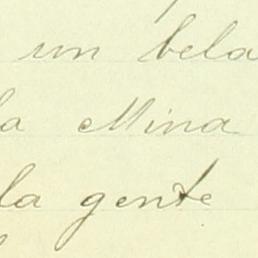 un bela
la Mina
la gente